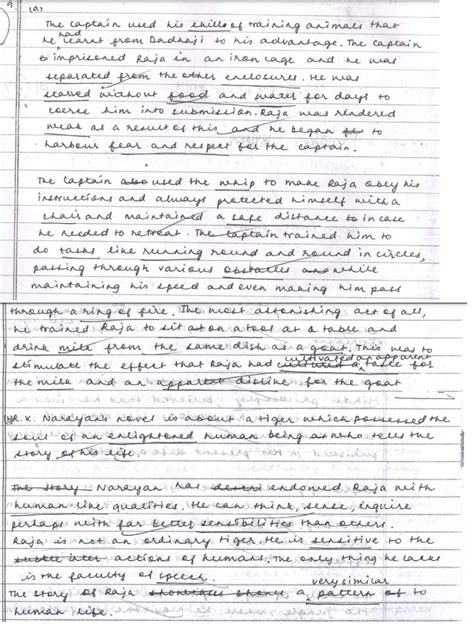 9 (a)
The captain used his skills of training animals that
he had learnt from Dadhaji to his advantage. The captain
imprisoned Raja in an iron cage and he was
separated from the other enclosures. He was
starved without food and water for days to
coerce him into submission. Raja was rendered
weak as a result of this and he began to
harbour fear and respect for the captain.
The Captain used the whip to make Raja obey his
instructions and always protected himself with a
chair and maintained a safe distance in case
he needed to retreat. The Captain trained him to
do tasks like running round and round in circles,
passing through various obstacles while
maintaining his speed and even making him pass
through a ring of fire. The most astonishing act of all,
he trained Raja to sit on a tool at a table and
drink milk from the same dish as a goat. This was to
stimulate the effect that Raja had cultivated an apparent taste for
the milk and an apparent dislike for the goat
(b) R.K. Narayan's novel is about a tiger which possessed the
soul of an enlightened human being who tells the
story of his life.
The story Narayan has endowed Raja with
human like qualities. He can think, sense, inquire
perhaps with far better sensibilities than others.
Raja is not an ordinary tiger. He is sensitive to the
subtle actions of humans. The only thing he lacks
is the faculty of speech.
The story of Raja a pattern very similar to
human life.